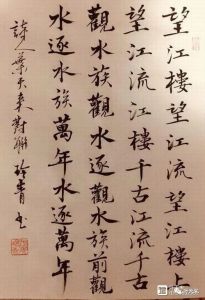 望江樓望江流望江樓上
望江流江樓千古江流千古
觀水族觀水逐觀水族前觀
水逐水族萬年水逐萬年
詩人葉天來對聯 青书